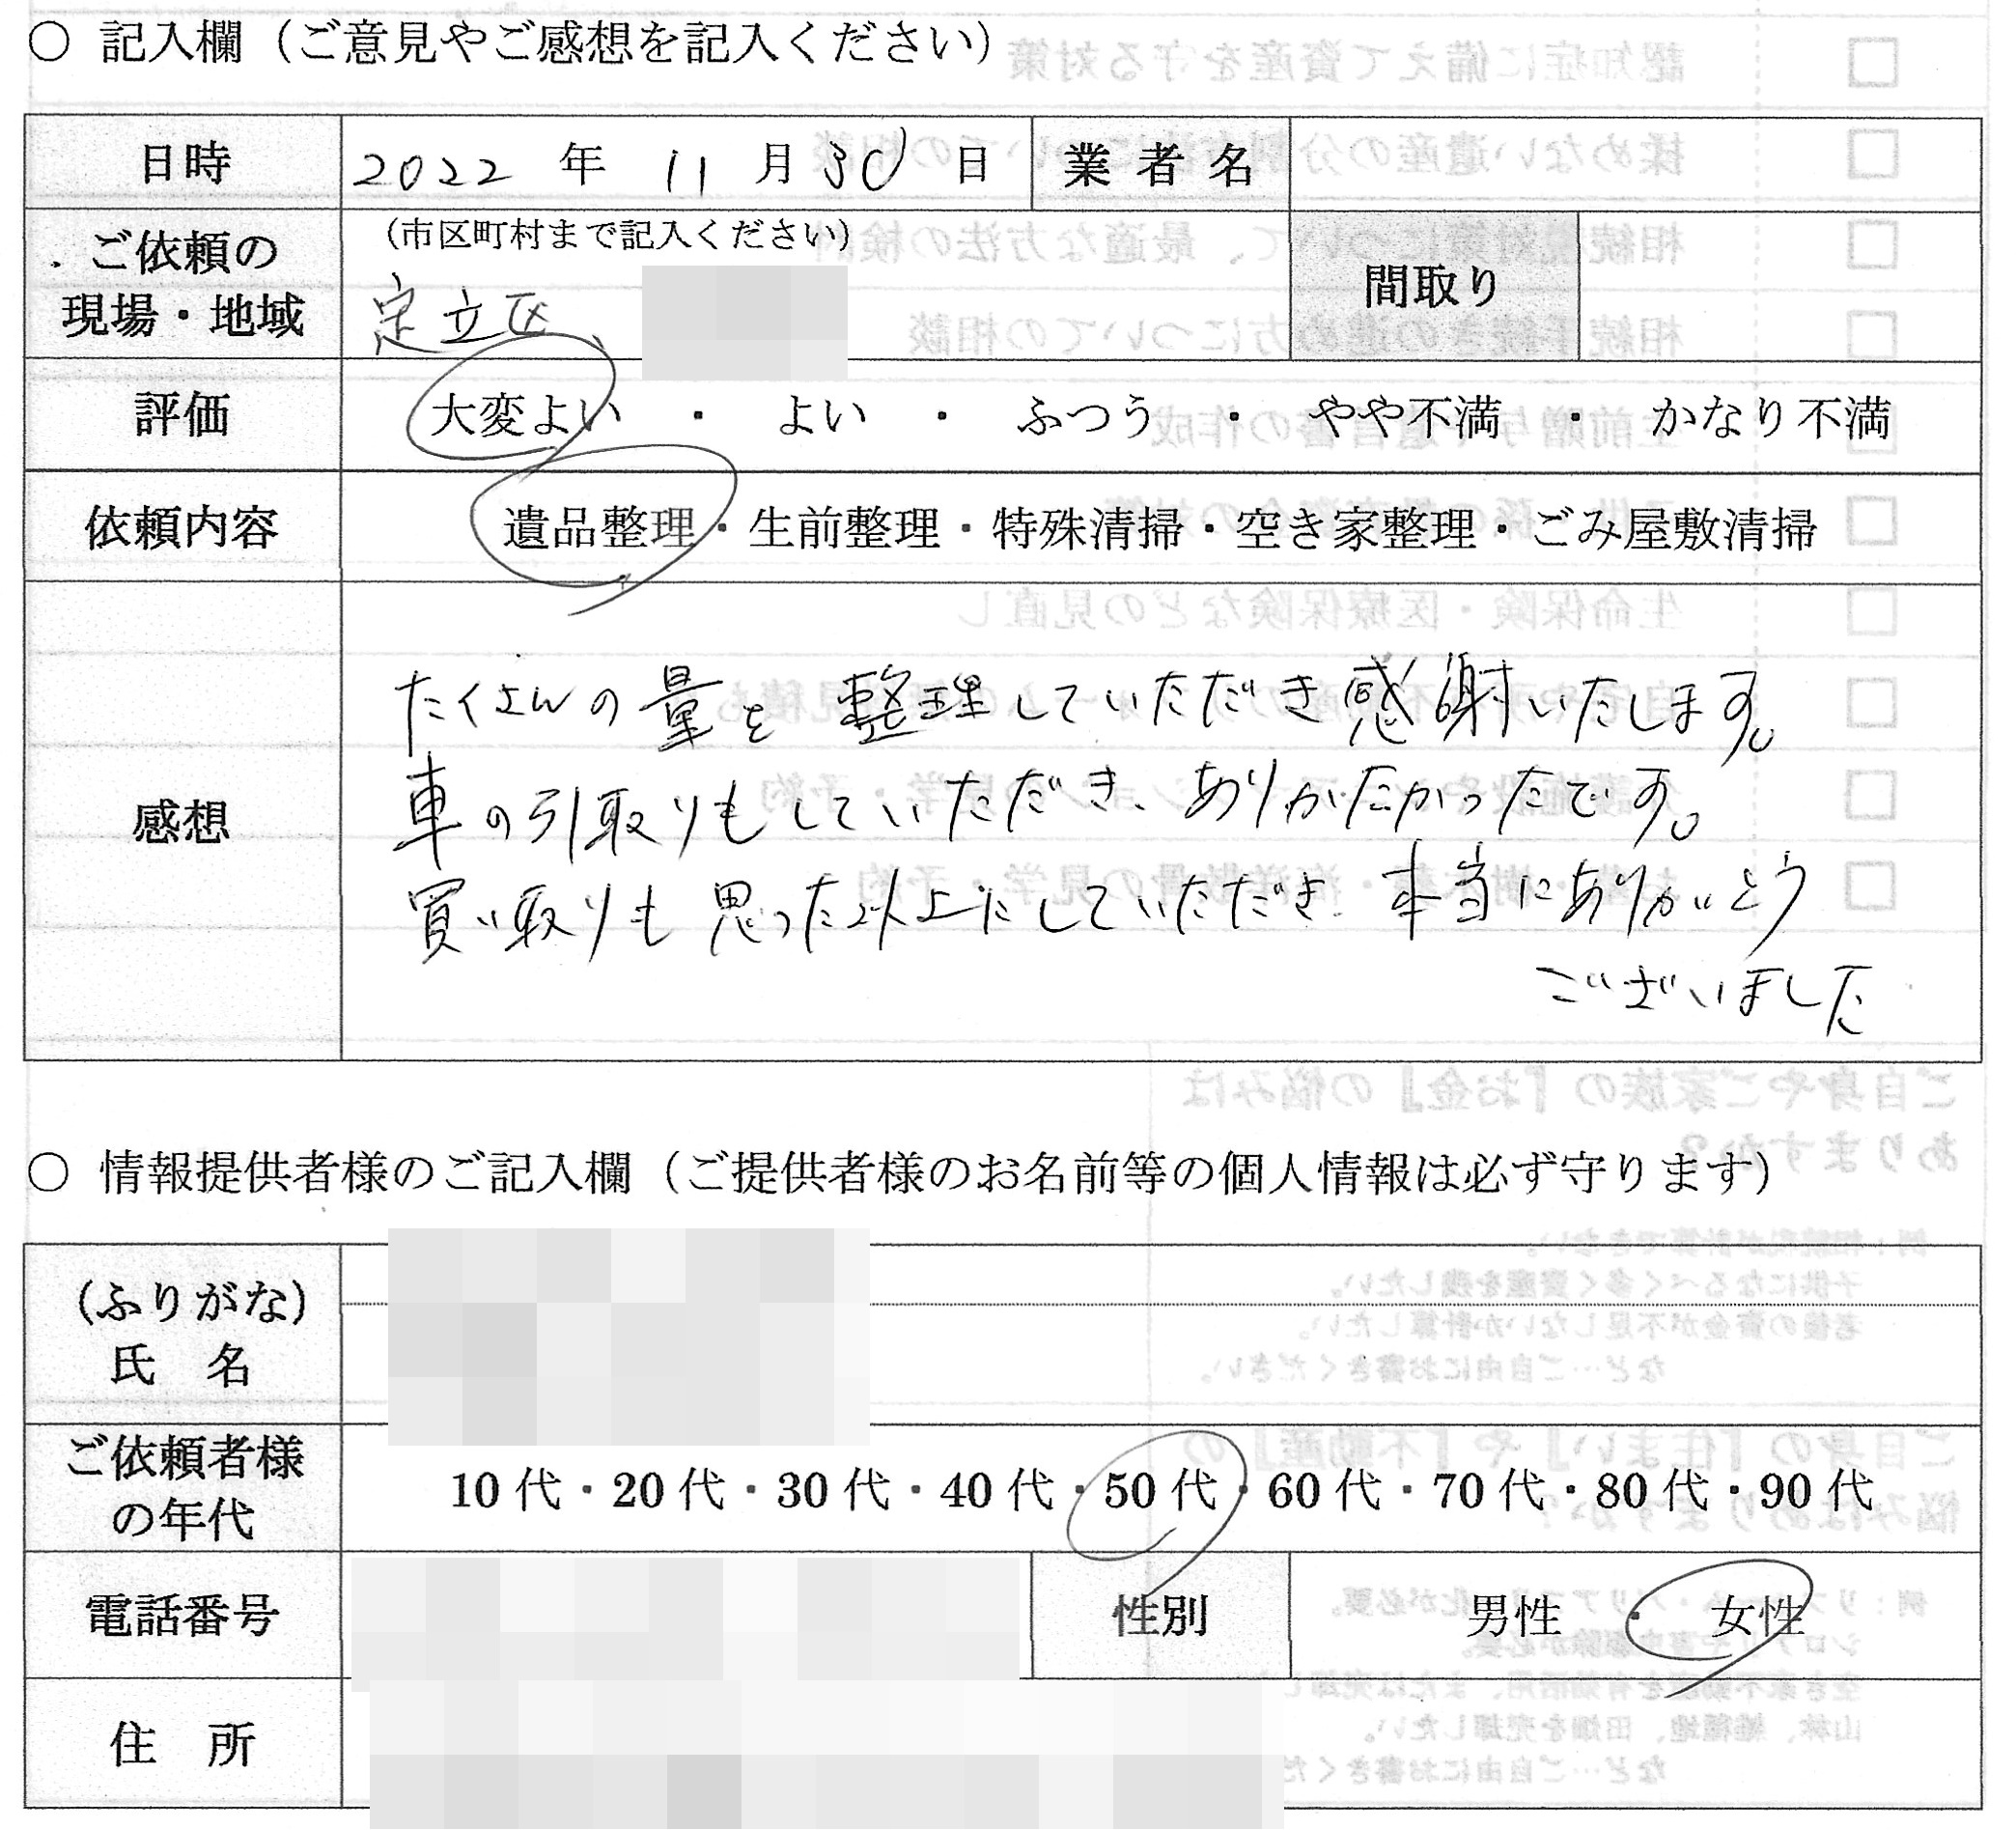 ○ 記入欄（ご意見やご感想を記入ください）
日時 2022 年 11 月 30 日 業者名
ご依頼の現場・地域 （市区町村まで記入ください） 間取り
足立区
評価 大変よい ・ よい ・ ふつう ・ やや不満 ・ かなり不満
依頼内容 遺品整理・生前整理・特殊清掃・空き家整理・ごみ屋敷清掃
感想
たくさんの量を整理していただき感謝いたします。
車の引取りもしていただき、ありがたかったです。
買い取りも思った以上にしていただき 本当にありがとう
ございました
○ 情報提供者様のご記入欄（ご提供者様のお名前等の個人情報は必ず守ります）
（ふりがな）
氏 名
ご依頼者様の年代 10代・20代・30代・40代・50代・60代・70代・80代・90代
電話番号 性別 男性 ・ 女性
住 所